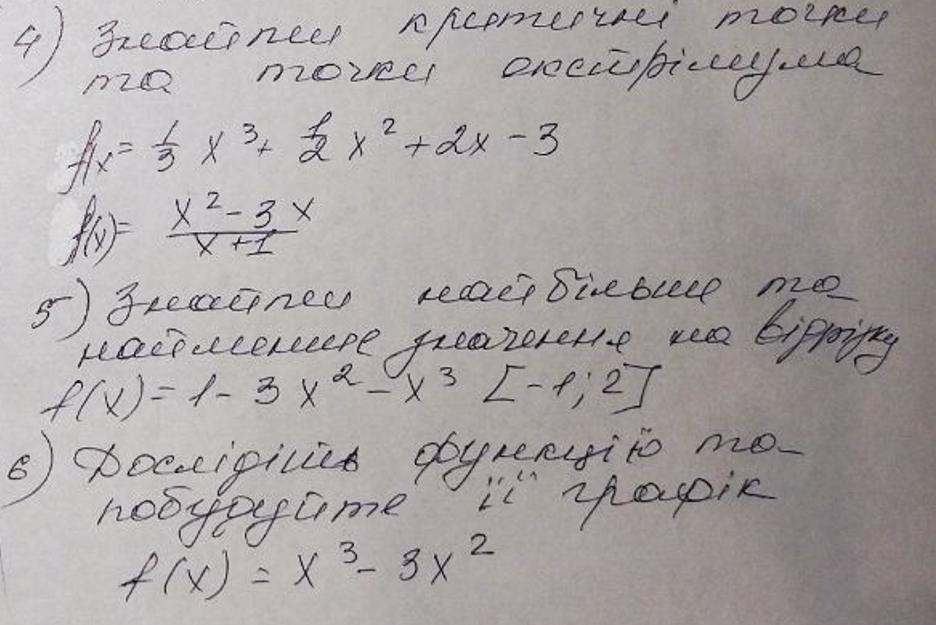 4) Знайти критичні точки
та точки екстрімума
f(x)= 1/3 x³ + 1/2 x² + 2x - 3
f(x)= (x² - 3x)/(x + 1)
5) Знайти найбільше та
найменше значення на відрізку
f(x) = 1 - 3x² - x³ [-1; 2]
6) Дослідіть функцію та
побудуйте її графік
f(x) = x³ - 3x²